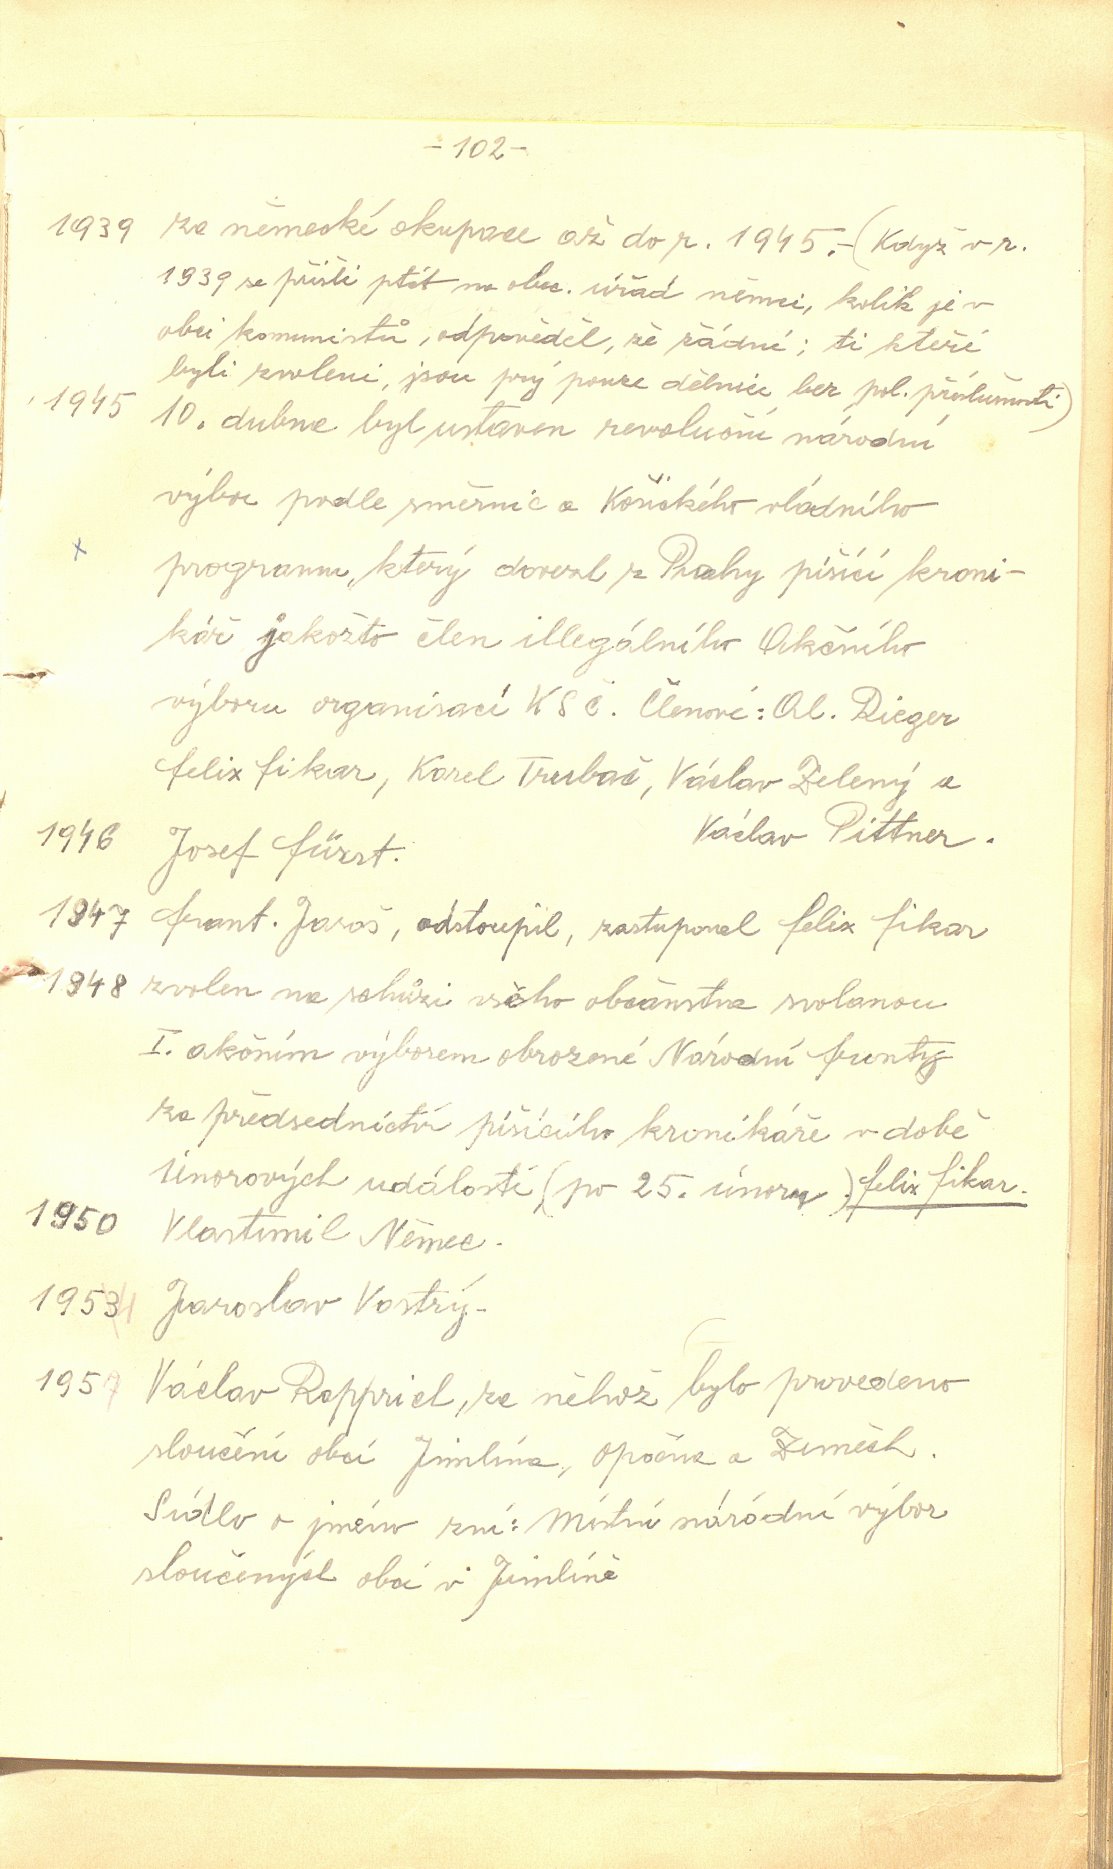 -102-
1939 za německé okupace až do r. 1945.-(Když v r.
1939 se přišli ptát na obec. úřad němci, kolik je v
obci komunistů, odpověděl, že žádní; ti kteří
byli zvoleni, jsou prý pouze dělníci bez pol. příslušnosti)
1945 10. dubna byl ustaven revoluční národní
výbor podle směrnic a Košického vládního
x programu, který dovezl z Prahy píšící kroni-
kář jakožto člen illegálního Akčního
výboru organisací KSČ. Členové: Al. Rieger
Felix Fikar, Karel Trubač, Václav Zelený a
Václav Pittner.
1946 Josef Fürst.
1947 Frant. Jaroš, odstoupil, zastupoval Felix Fikar
1948 zvolen na schůzi všeho občanstva svolanou
I. akčním výborem obrozené Národní fronty
za předsednictví píšícího kronikáře v době
Únorových událostí (po 25. únoru). Felix Fikar.
1950 Vlastimil Němec.
1953 Jaroslav Vostrý-
1957 Václav Rapprich, za něhož bylo provedeno
sloučení obcí Jimlína, Opočna a Zeměch.
Sídlo a jméno zní: Místní národní výbor
sloučených obcí v Jimlíně